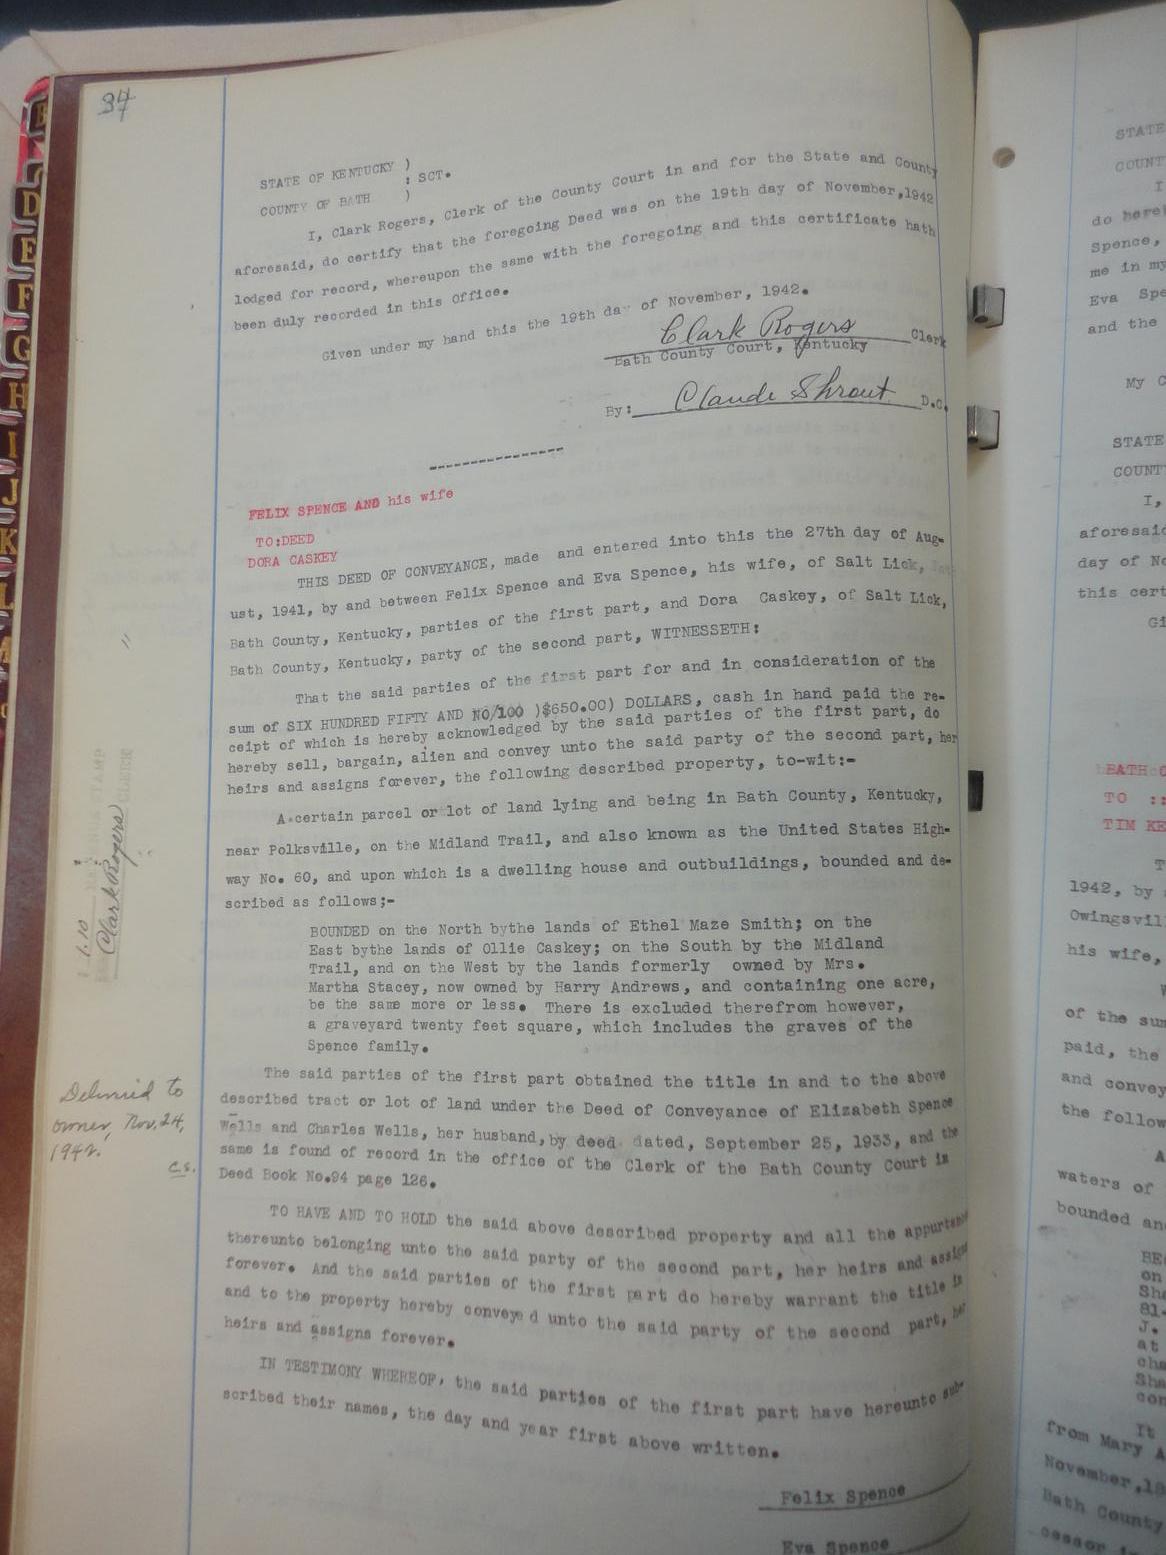 34
STATE OF KENTUCKY )
: SCT.
COUNTY OF BATH )
I, Clark Rogers, Clerk of the County Court in and for the State and County
aforesaid, do certify that the foregoing Deed was on the 19th day of November,1942
lodged for record, whereupon the same with the foregoing and this certificate hath
been duly recorded in this Office.
Given under my hand this the 19th day of November, 1942.
Clark Rogers Clerk
Bath County Court, Kentucky
By: Claude Shrout D.C.
FELIX SPENCE AND his wife
TO:DEED
DORA CASKEY
THIS DEED OF CONVEYANCE, made and entered into this the 27th day of Aug-
ust, 1941, by and between Felix Spence and Eva Spence, his wife, of Salt Lick,
Bath County, Kentucky, parties of the first part, and Dora Caskey, of Salt Lick,
Bath County, Kentucky, party of the second part, WITNESSETH:
That the said parties of the first part for and in consideration of the
sum of SIX HUNDRED FIFTY AND NO/100 )$650.00) DOLLARS, cash in hand paid the re-
ceipt of which is hereby acknowledged by the said parties of the first part, do
hereby sell, bargain, alien and convey unto the said party of the second part, her
heirs and assigns forever, the following described property, to-wit:-
A certain parcel or lot of land lying and being in Bath County, Kentucky,
near Polksville, on the Midland Trail, and also known as the United States High-
way No. 60, and upon which is a dwelling house and outbuildings, bounded and de-
scribed as follows;-
BOUNDED on the North bythe lands of Ethel Maze Smith; on the
East bythe lands of Ollie Caskey; on the South by the Midland
Trail, and on the West by the lands formerly owned by Mrs.
Martha Stacey, now owned by Harry Andrews, and containing one acre,
be the same more or less. There is excluded therefrom however,
a graveyard twenty feet square, which includes the graves of the
Spence family.
The said parties of the first part obtained the title in and to the above
described tract or lot of land under the Deed of Conveyance of Elizabeth Spence
Wells and Charles Wells, her husband,by deed dated, September 25, 1933, and the
same is found of record in the office of the Clerk of the Bath County Court in
Deed Book No.94 page 126.
TO HAVE AND TO HOLD the said above described property and all the appurtena
thereunto belonging unto the said party of the second part, her heirs and assigns
forever. And the said parties of the first part do hereby warrant the title in
and to the property hereby conveyed unto the said party of the second part, her
heirs and assigns forever.
IN TESTIMONY WHEREOF, the said parties of the first part have hereunto sub-
scribed their names, the day and year first above written.
Felix Spence
Eva Spence
1.10
Clark Rogers
CLERK
Delivered to
owner, Nov. 24,
1942.
C.S.
D
E
F
G
H
I
J
K
L
STATE
COUNT
I
do here
Spence,
me in my
Eva Spe
and the
My C
STATE
COUNT
I,
aforesai
day of No
this cert
Gi
BATH C
TO ::
TIM KE
T
1942, by
Owingsvil
his wife,
W
of the sum
paid, the
and convey
the follow
A
waters of
bounded an
BE
on
Sha
81-
J.
at
cha
Sha
con
It
from Mary A
November,18
Bath County
cessor i